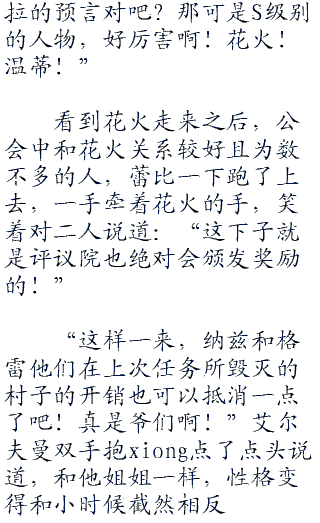 拉的预言对吧？那可是S级别
的人物，好厉害啊！花火！
温蒂！”
看到花火走来之后，公
会中和花火关系较好且为数
不多的人，蕾比一下跑了上
去，一手牵着花火的手，笑
着对二人说道：“这下子就
是评议院也绝对会颁发奖励
的！”
“这样一来，纳兹和格
雷他们在上次任务所毁灭的
村子的开销也可以抵消一点
了吧！真是爷们啊！”艾尔
夫曼双手抱xiong点了点头说
道，和他姐姐一样，性格变
得和小时候截然相反